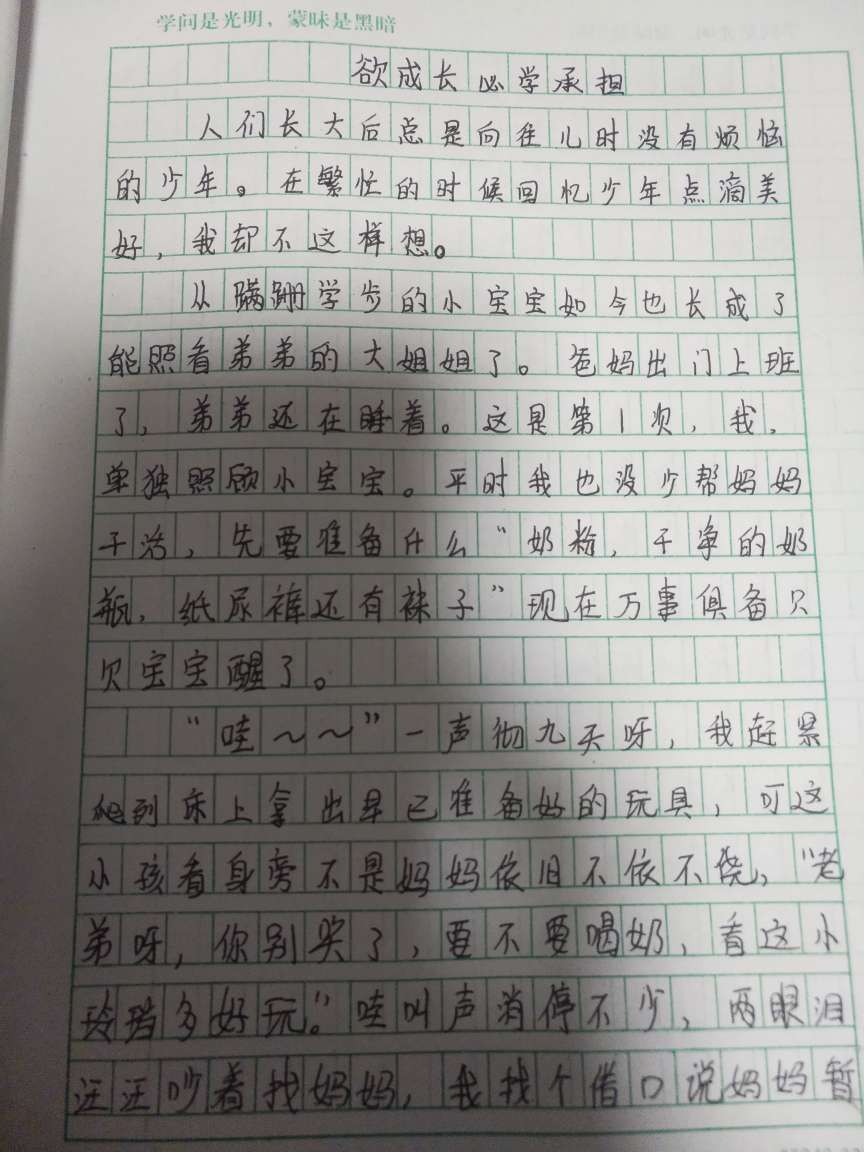 学问是光明，蒙昧是黑暗
欲成长必学承担
人们长大后总是向往儿时没有烦恼
的少年。在繁忙的时候回忆少年点滴美
好，我却不这样想。
从蹒跚学步的小宝宝如今也长成了
能照看弟弟的大姐姐了。爸妈出门上班
了，弟弟还在睡着。这是第1次，我，
单独照顾小宝宝。平时我也没少帮妈妈
干活，先要准备什么“奶粉，干净的奶
瓶，纸尿裤还有袜子”现在万事俱备只
欠宝宝醒了。
“哇～～”一声彻九天呀，我赶紧
爬到床上拿出早已准备好的玩具，可这
小孩看身旁不是妈妈依旧不依不饶，“老
弟呀，你别哭了，要不要喝奶，看这小
玲珰多好玩。”哇叫声消停不少，两眼泪
汪汪吵着找妈妈，我找个借口说妈妈暂